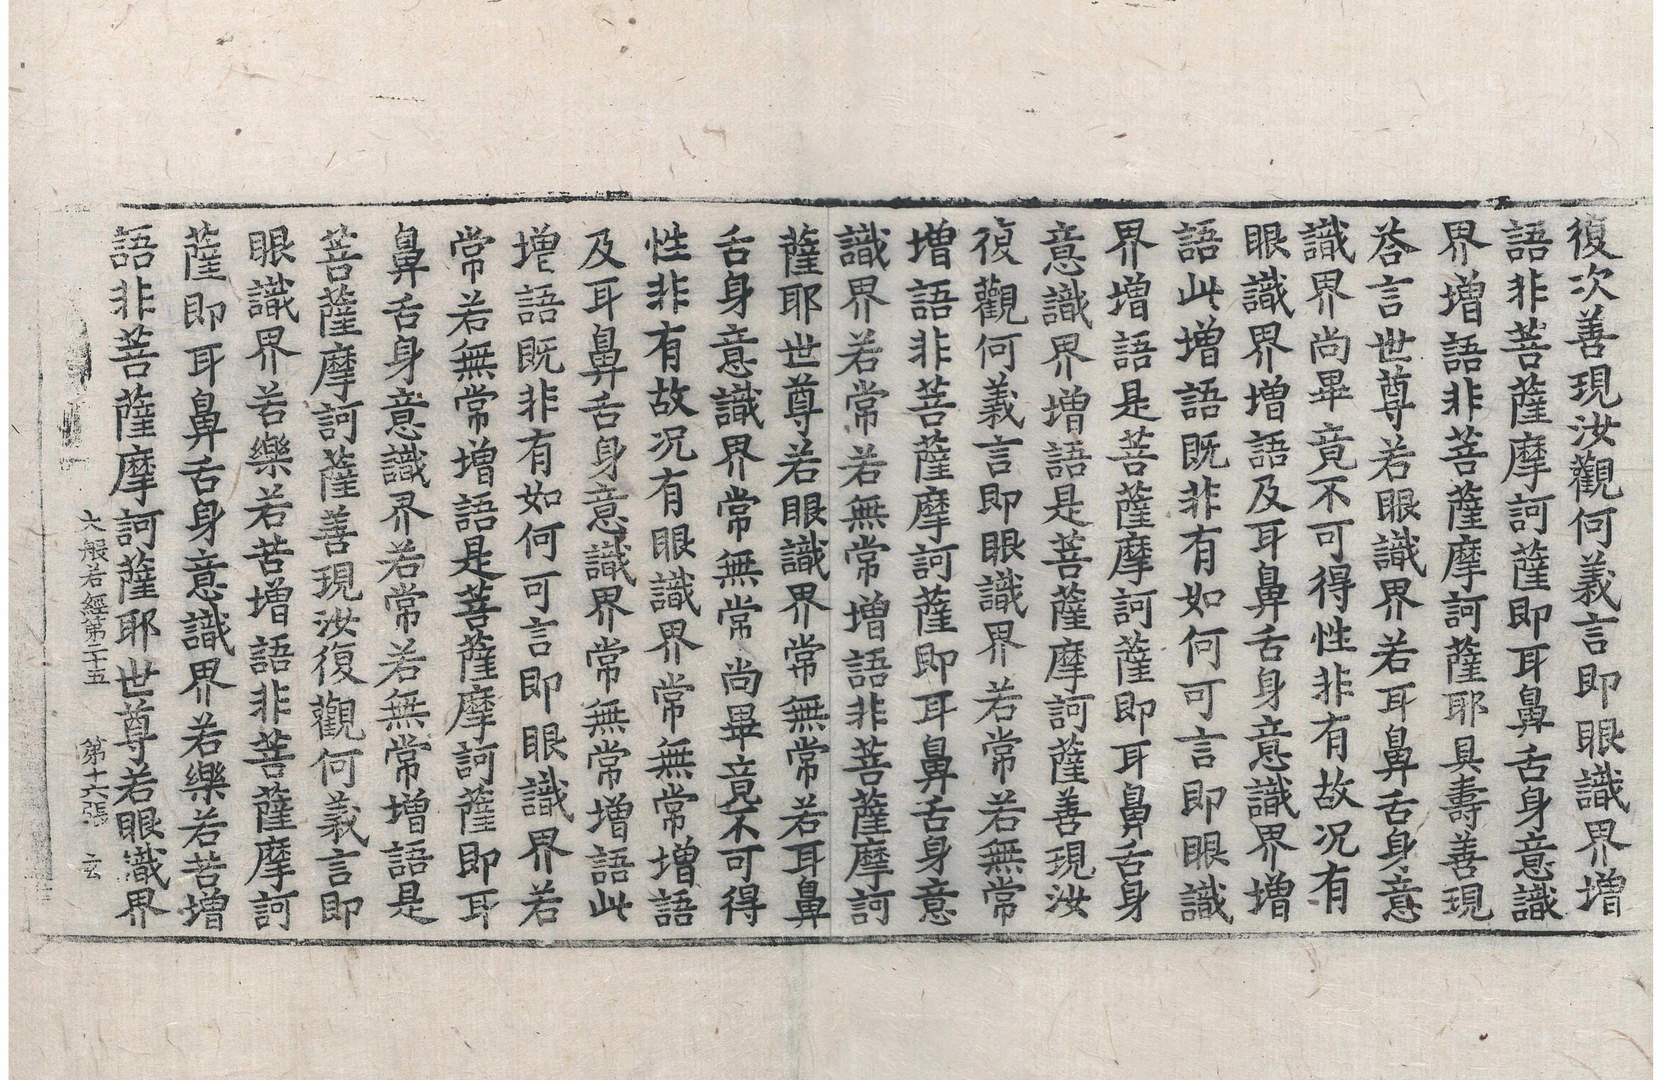 復次善現汝觀何義言即眼識界增
語非菩薩摩訶薩即耳鼻舌身意識
界增語非菩薩摩訶薩耶具壽善現
荅言世尊若眼識界若耳鼻舌身意
識界尚畢竟不可得性非有故况有
眼識界增語及耳鼻舌身意識界增
語此增語既非有如何可言即眼識
界增語是菩薩摩訶薩即耳鼻舌身
意識界增語是菩薩摩訶薩善現汝
復觀何義言即眼識界若常若無常
增語非菩薩摩訶薩即耳鼻舌身意
識界若常若無常增語非菩薩摩訶
薩耶世尊若眼識界常無常若耳鼻
舌身意識界常無常尚畢竟不可得
性非有故况有眼識界常無常增語
及耳鼻舌身意識界常無常增語此
增語既非有如何可言即眼識界若
常若無常增語是菩薩摩訶薩即耳
鼻舌身意識界若常若無常增語是
菩薩摩訶薩善現汝復觀何義言即
眼識界若樂若苦增語非菩薩摩訶
薩即耳鼻舌身意識界若樂若苦增
語非菩薩摩訶薩耶世尊若眼識界
大般若經第二十五 第十六張 云